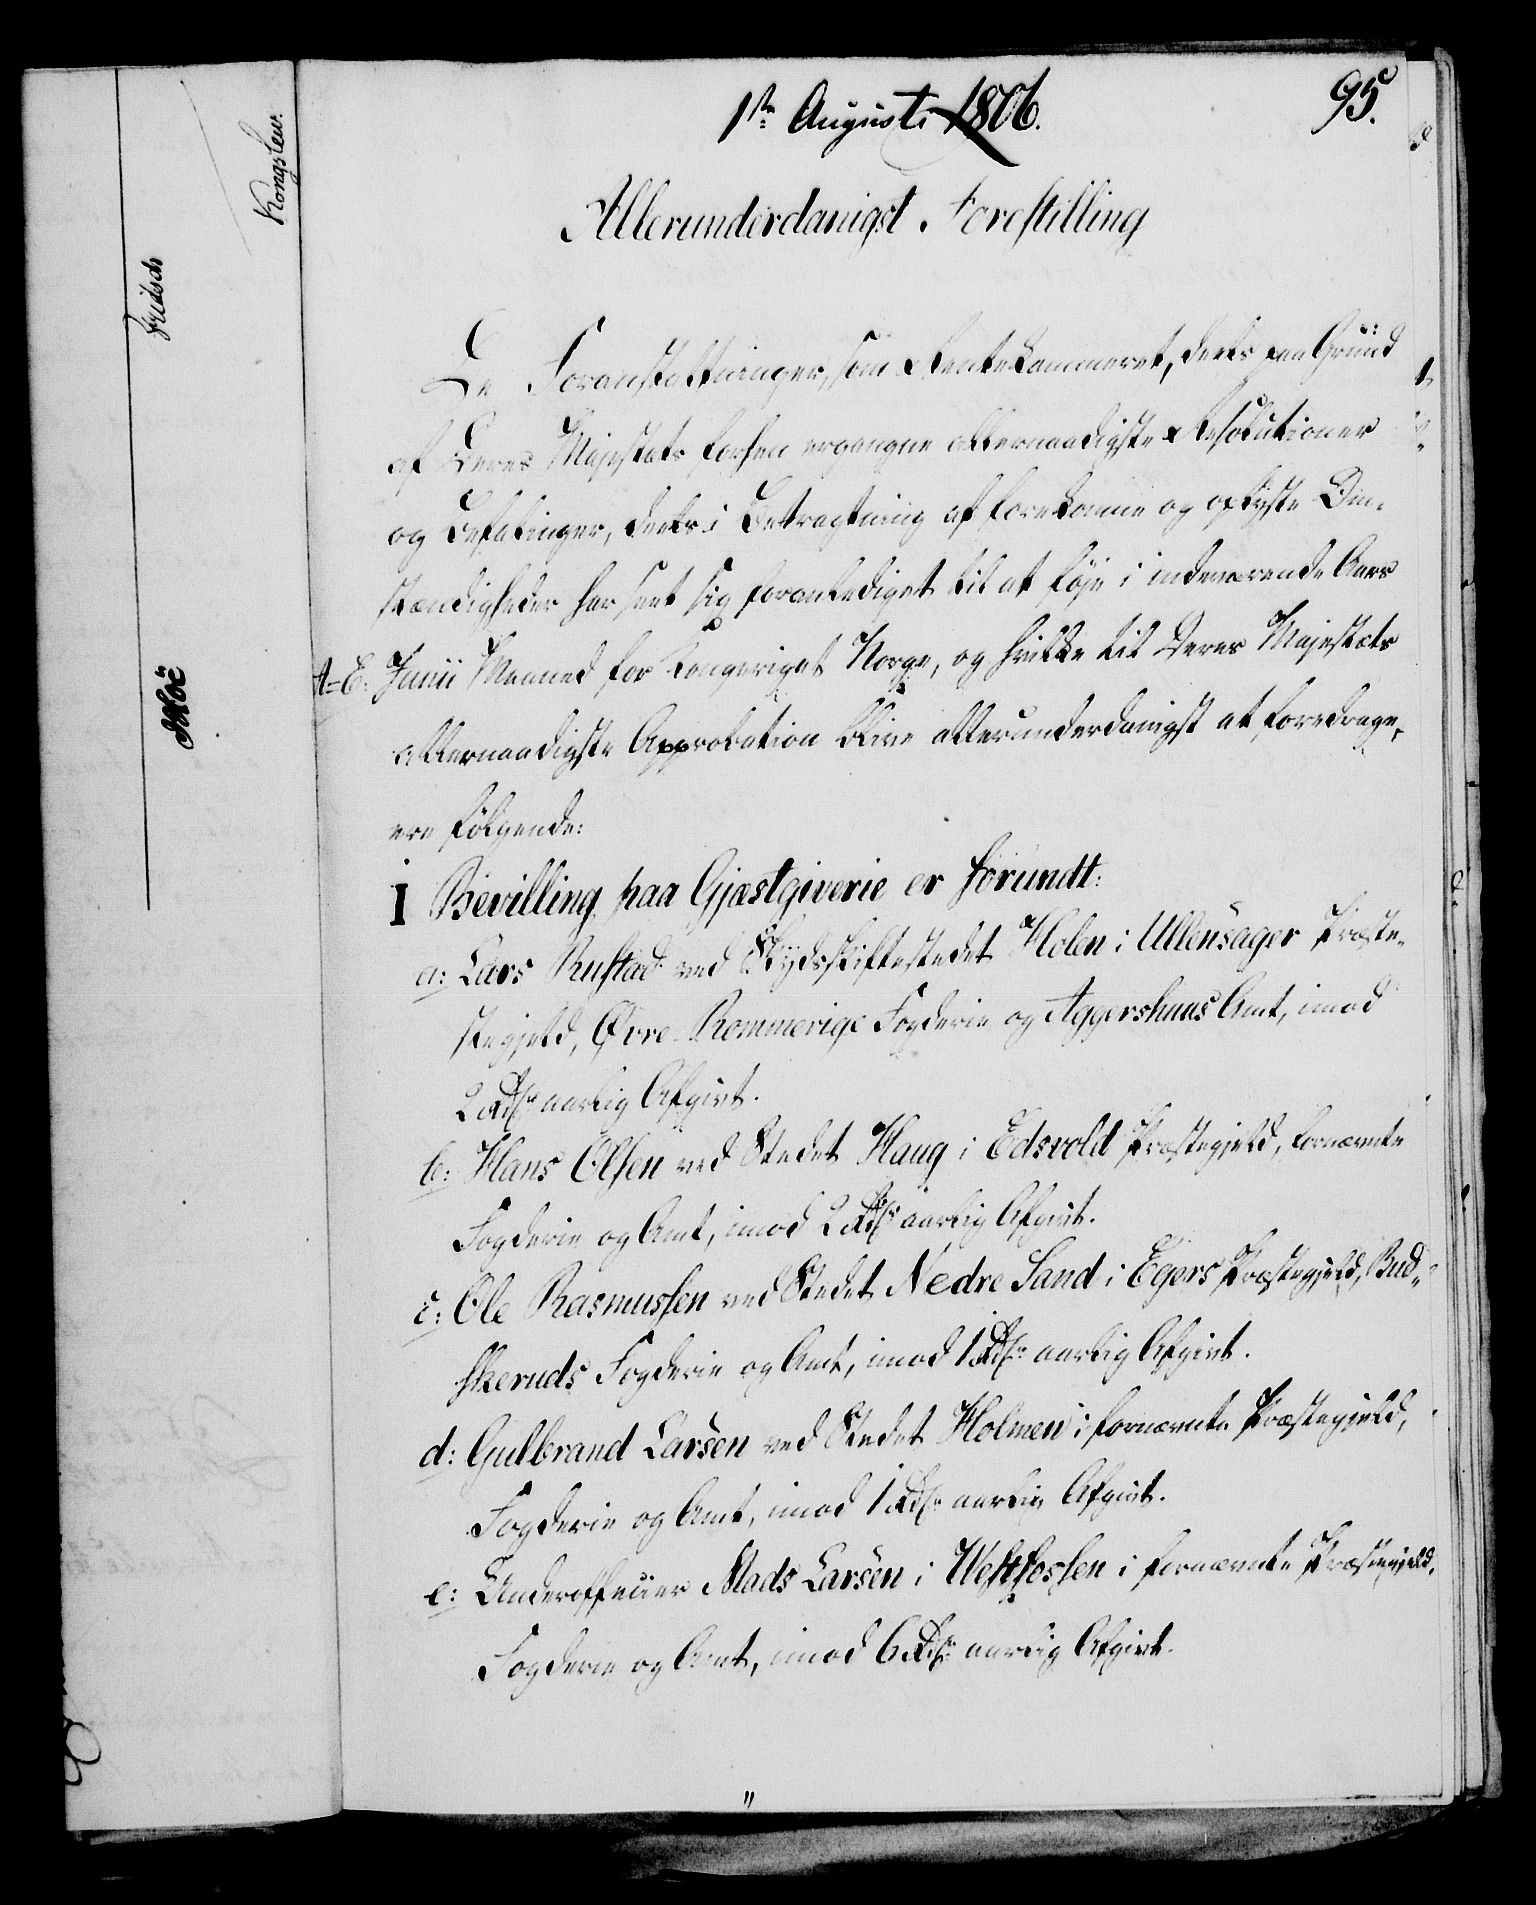 1ste Augusti 1806.
95.
Allerunderdanigst Forestilling
De Foranstaltninger, som Rentekammeret, deels paa Grund
af Deres Majestæts forhen ergangne allernaadigste Resolutioner
og Befalinger, deels i Betragtning af forekomne og oplyste Om-
stændigheder har seet sig foranlediget til at føje i indeværende Aars
A=E. Junii Maaned for Kongeriget Norge, og hvilke til Deres Majestæts
allernaadigste Approbation blive allerunderdanigst at foredrage,
ere følgende:
I Bevilling paa Gjæstgiverie er forundt:
a: Lars Rustad ved Skydsskiftestedet Holen i Ullensager Præste-
stegjeld, Øvre Rommerige Fogderie og Aggershuus Amt, imod
2 Rdlr aarlig Afgivt.
b: Hans Olsen ved Stedet Haug i Edsvold Præstegjeld, fornævnte
Fogderie og Amt, imod 2 Rdlr aarlig Afgivt.
c: Ole Rasmussen ved Stedet Nedre Sand i Egers Præstegjeld, Bud-
skeruds Fogderie og Amt, imod 1 Rdlr aarlig Afgivt.
d: Gulbrand Larsen ved Stedet Holmen i fornævnte Præstegjeld,
Fogderie og Amt, imod 1 Rdlr aarlig Afgivt.
e: Underofficer Mads Larsen i Westfossen i fornævnte Præstegjeld,
Fogderie og Amt, imod 6 Rdlr aarlig Afgivt.
Kongslew.
Fridsch